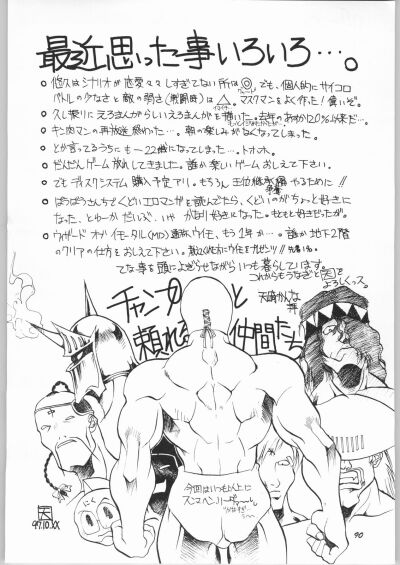 最近思った事いろいろ…。
悠久はシナリオが恋愛々々しすぎてない所は◎。でも、個人的にサイコロ
バトルの少なさと敵の弱さ(戦闘時)は△。マスクマンをよく作った!偉いぞ。
久し振りにえろまんがらしいえろまんがを描いた。去年のあすか120%以来だ…。
キン肉マンの再放送終わった…。朝の楽しみがなくなってしまった。
とか言ってるうちにもー22歳になってしまった…。トホホ。
だんだんゲーム放れしてきました。誰か楽しいゲームおしえて下さい。
でもディスクシステム購入予定アリ。もちろん王位継承編やるために!!
ぱらぱらさんちでくどいエロマンガを読んでたら、くどいのがちょっと好きに
なった、とゆーかだいぶ、いやかなり好きになった。もともと好きだったが。
ウィザード オブ イモータル(MD)通称ウイモ、もう1年か…。誰か地下2階
のクリアの仕方をおしえて下さい。
てな事を頭によぎらせながらいつも暮らしています。
これからもうなぎと天を
よろしくっス。
天崎かんな
チャンプと
頼れる仲間たち
今回はいつも以上に
スジマンペンリーでぅ〜〜。
天
97.10.XX
90